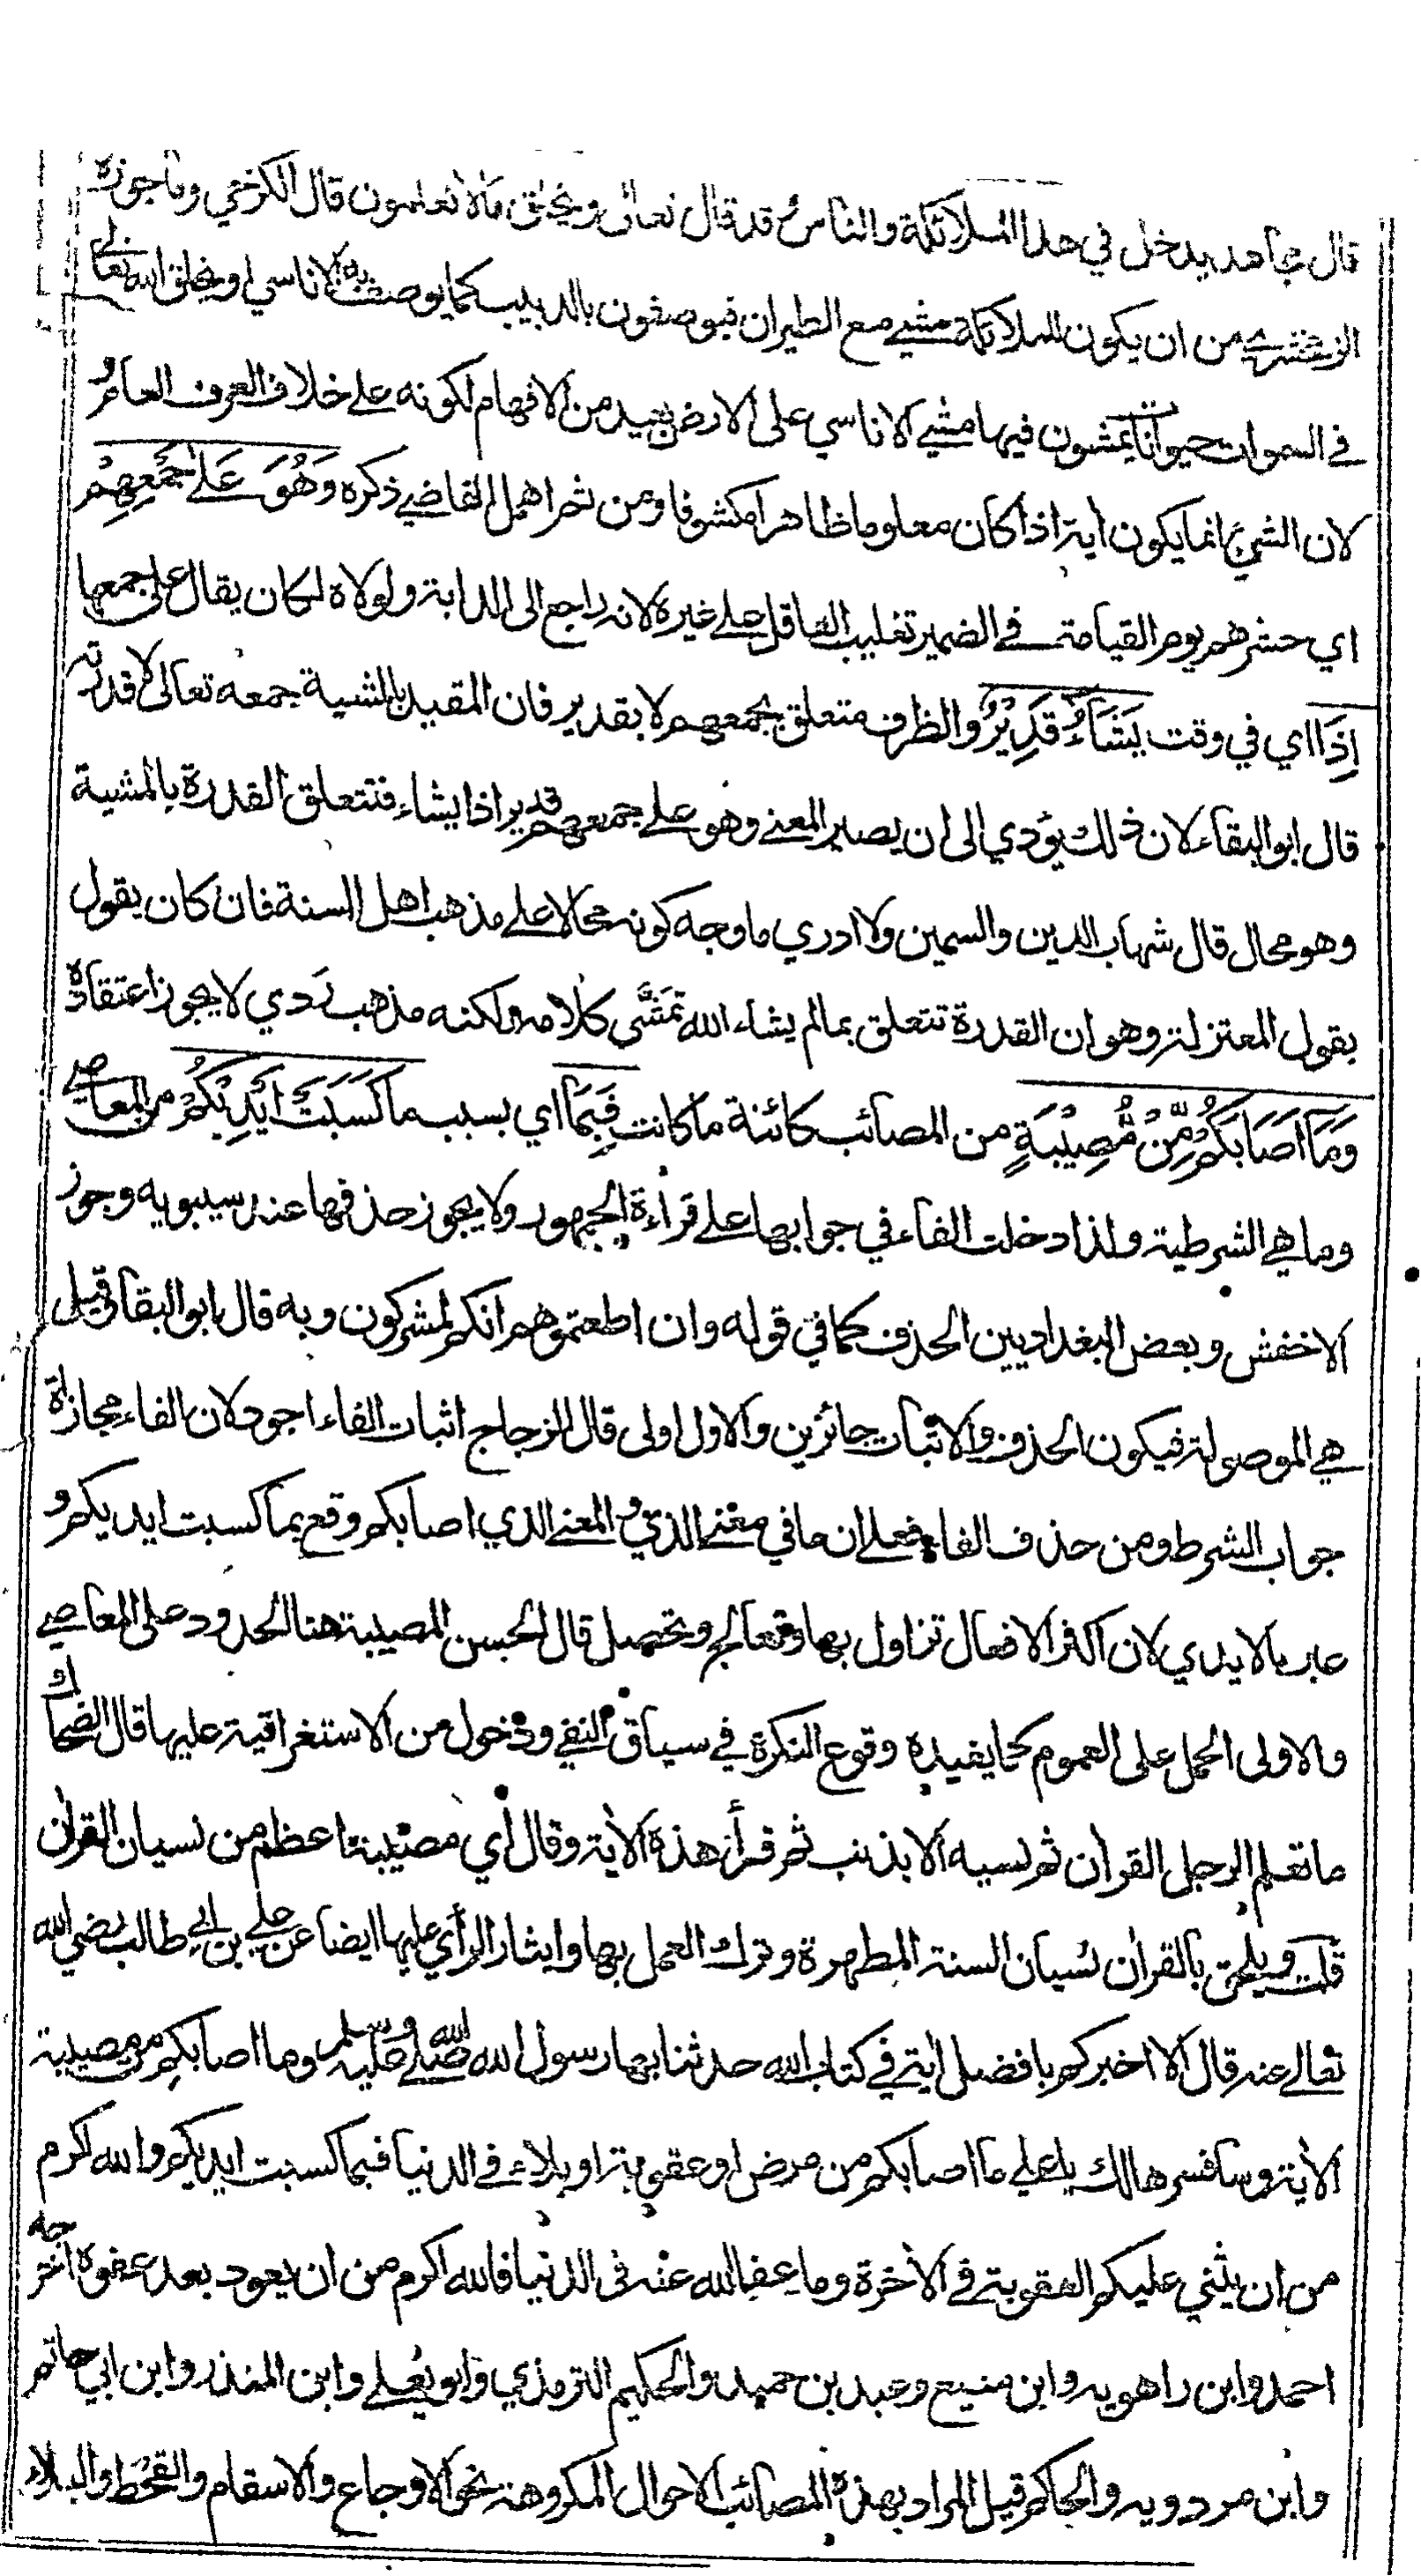 قال مجاهد يدخل في هذا الملائكة والناس وقد قال تعالى ويخلق مالا تعلمون قال الكرخي وما جوزه
الزمخشري من ان يكون للملائكة مشي مع الطيران فيوصفون بالدبيب كما يوصف به الاناسي او يخلق الله تعالى
في السموات حيوانات يمشون فيها مشي الاناسي على الارض بعيد من الافهام لكونه على خلاف العرف العام و
لان الشيء انما يكون اية اذا كان معلوما ظاهرا مكشوفا ومن ثم اهمل القاضي ذكره وَهُوَ عَلَىٰ جَمْعِهِمْ
اي حشرهم يوم القيامة في الضمير تغليب العاقل على غيره لانه راجع الى الدابة ولولاه لكان يقال على جمعها
اِذَا اي في وقت يَشَآءُ قَدِيْرٌ والظرف متعلق بجمعهم لا بقدير فان المقيد بالمشية جمعه تعالى لا قدرته
قال ابو البقاء لان ذلك يؤدي الى ان يصير المعنى وهو على جمعهم قدير اذا يشاء فتتعلق القدرة بالمشية
وهو محال قال شهاب الدين والسمين ولا ادري ما وجه كونه محالا على مذهب اهل السنة فان كان يقول
بقول المعتزلة وهو ان القدرة تتعلق بما لم يشاء الله تَمَشَّى كلامه ولكنه مذهب ردي لا يجوز اعتقاده
وَمَآ اَصَابَكُمْ مِّنْ مُّصِيْبَةٍ من المصائب كائنة ما كانت فَبِمَا اي بسبب ما كَسَبَتْ اَيْدِيْكُمْ من المعاصي
وما هي الشرطية ولذا دخلت الفاء في جوابها على قراءة الجمهور ولا يجوز حذفها عند سيبويه وجوز
الاخفش وبعض البغداديين الحذف كما في قوله وان اطعتموهم انكم لمشركون وبه قال ابو البقا وقيل
هي الموصولة فيكون الحذف والاثبات جائزين والاول اولى قال الزجاج اثبات الفاء اجود لان الفاء مجازاة
جواب الشرط ومن حذف الفاء فعلى ان ما في معنى الذي والمعنى الذي اصابكم وقع بما كسبت ايديكم و
عبر بالايدي لان اكثر الافعال تزاول بها وتعالج وتحصل قال الحسن المصيبة هنا الحدود على المعاصي
والاولى الحمل على العموم كما يفيده وقوع النكرة في سياق النفي ودخول من الاستغراقية عليها قال الضحاك
ما تعلم الرجل القرآن ثم نسيه الا بذنب ثم قرأ هذه الاية وقال أي مصيبة اعظم من نسيان القرآن
قلت ويلحق بالقرآن نسيان السنة المطهرة وترك العمل بها وايثار الرأي عليها ايضا عن علي بن ابي طالب رضي الله
تعالى عنه قال الا اخبركم بافضل اية في كتاب الله حدثنا بها رسول الله صلى الله عليه وسلم وما اصابكم من مصيبة
الاية وسافسرها لك يا علي ما اصابكم من مرض او عقوبة او بلاء في الدنيا فبما كسبت ايديكم والله اكرم
من ان يثني عليكم العقوبة في الآخرة وما عفا الله عنه في الدنيا فالله اكرم من ان يعود بعد عفوه اخرجه
احمد وابن راهويه وابن منيع وعبد بن حميد والحكيم الترمذي وابو يعلى وابن المنذر وابن ابي حاتم
وابن مردويه والحاكم قيل المراد بهذه المصائب الاحوال المكروهة نحو الاوجاع والاسقام والقحط والبلاء